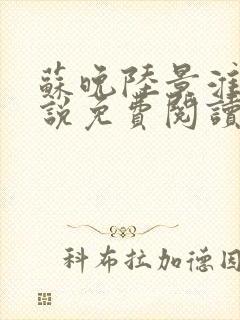 蘇晚陸景淮
說免費閱讀
科布拉加德